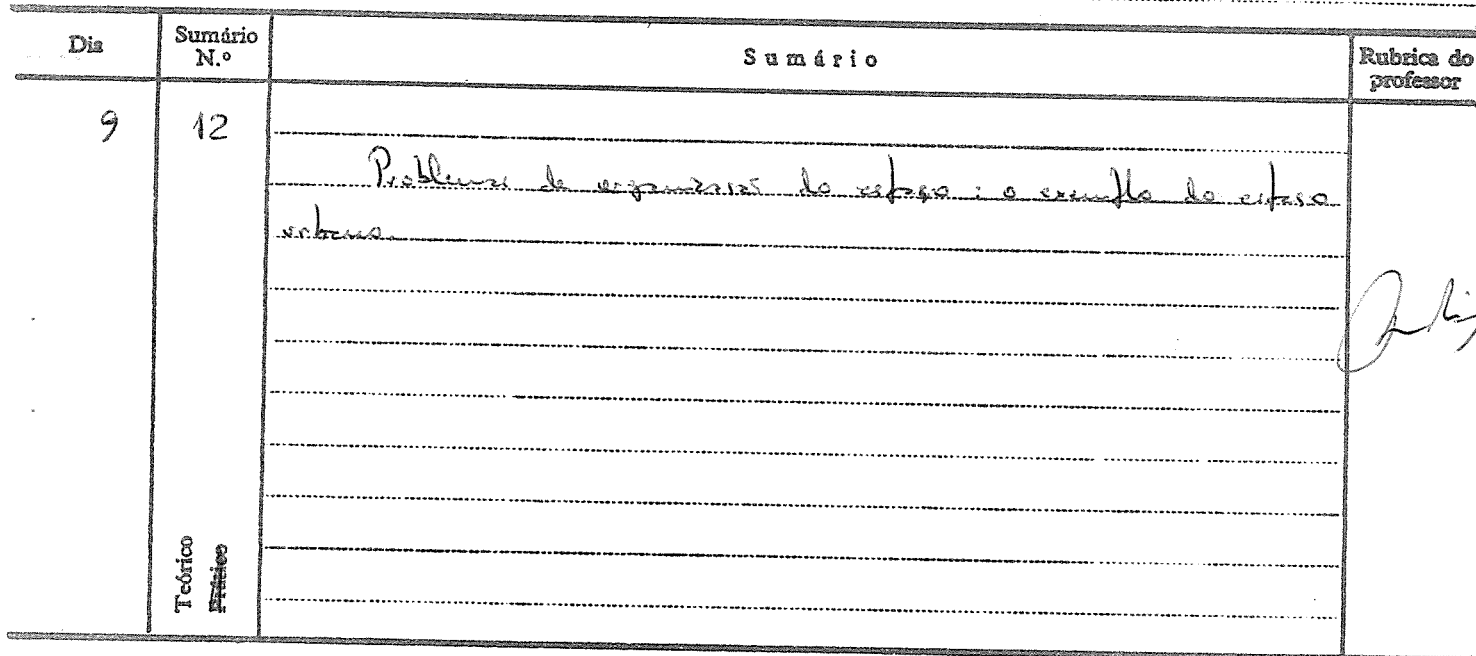 Dia
Sumário
N.º
Sumário
Rubrica do
professor
9
12
Problemas de organização do espaço : o exemplo do espaço
urbano.
Teórico
Prático